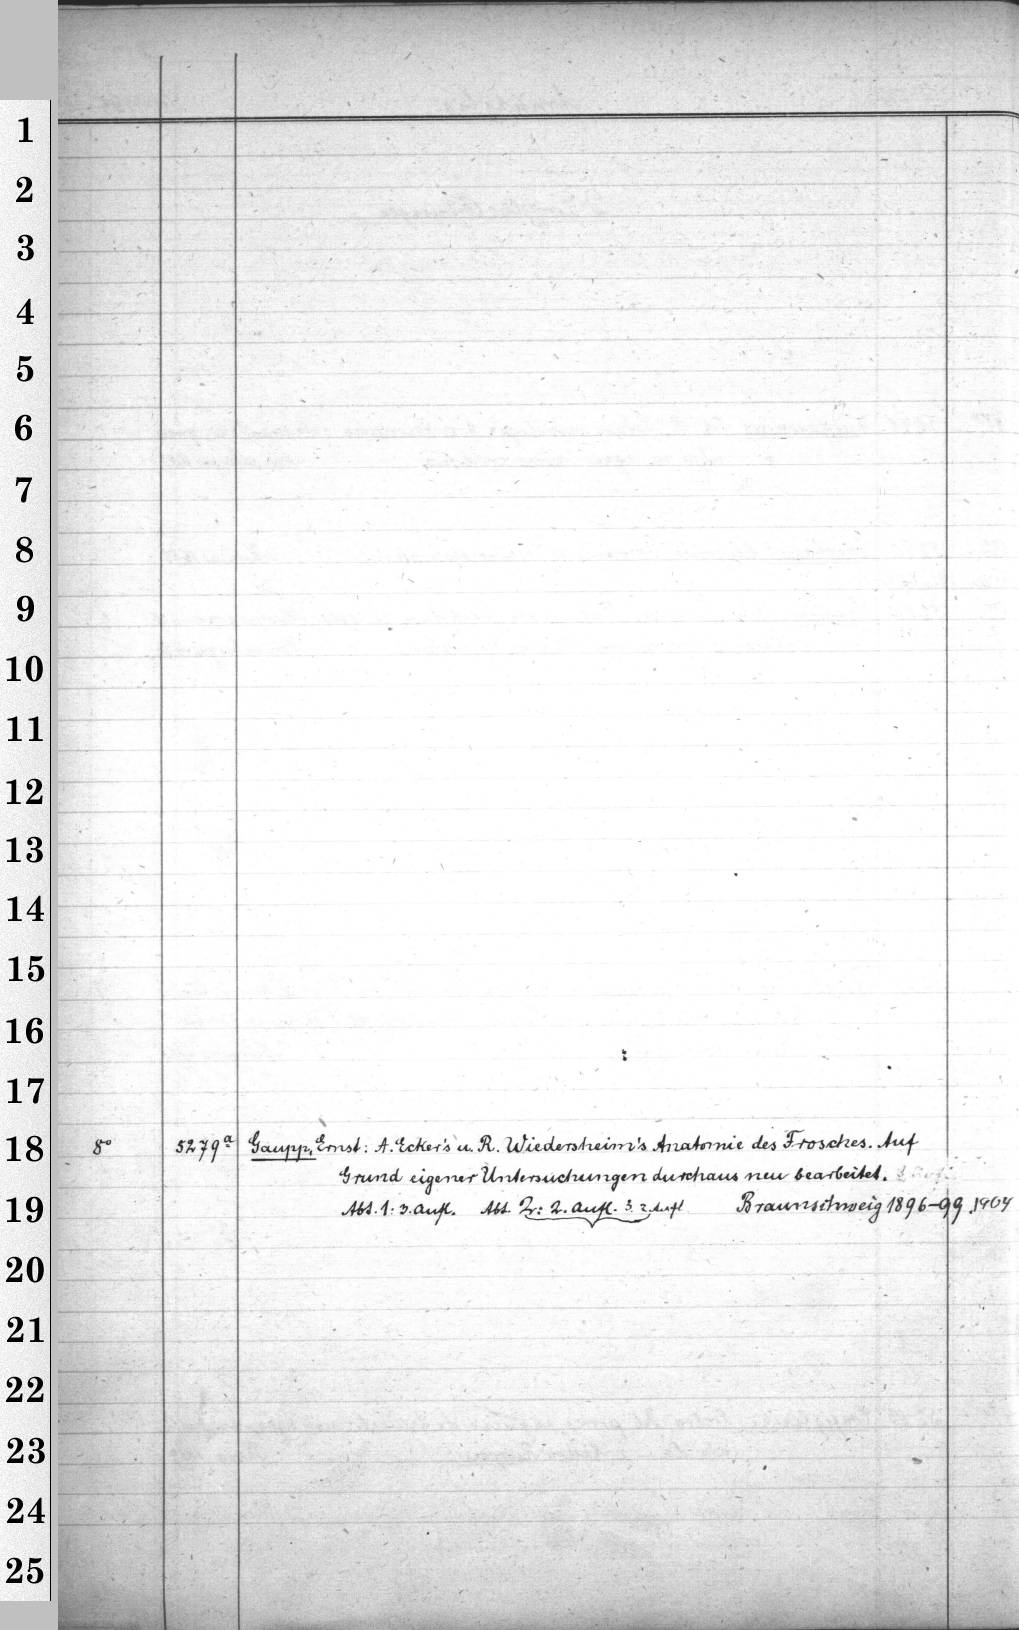 1
2
3
4
5
6
7
8
9
10
11
12
13
14
15
16
17
18
8° 5279a Gaupp, Ernst: A. Ecker's u. R. Wiedersheim's Anatomie des Frosches. Auf
Grund eigener Untersuchungen durchaus neu bearbeitet.
19
Abt. 1: 3. Aufl. Abt. 2: 2. Aufl. 3. 2. Aufl Braunschweig 1896-99. 1904
20
21
22
23
24
25